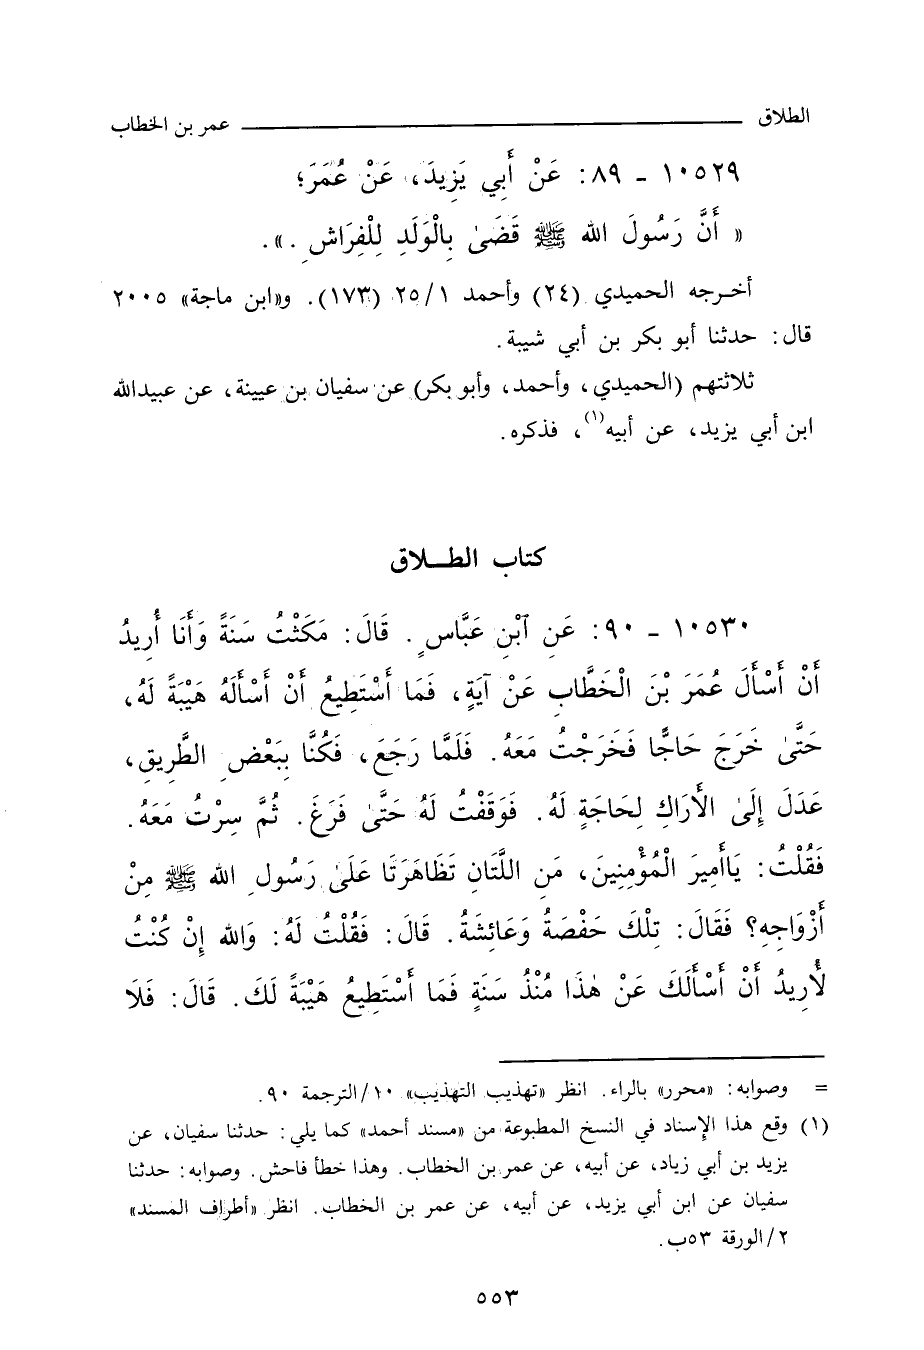 الطلاق ــــــ عمر بن الخطاب
١٠٥٢٩ - ٨٩: عَنْ أَبِي يَزِيدَ، عَنْ عُمَرَ؛
« أَنَّ رَسُولَ اللهِ ﷺ قَضَىٰ بِالْوَلَدِ لِلْفِرَاشِ . ».
أخرجه الحميدي (٢٤) وأحمد ٢٥/١ (١٧٣). و«ابن ماجة» ٢٠٠٥
قال: حدثنا أبو بكر بن أبي شيبة.
ثلاثتهم (الحميدي، وأحمد، وأبو بكر) عن سفيان بن عيينة، عن عبيدالله
ابن أبي يزيد، عن أبيه(١)، فذكره.
كتاب الطلاق
١٠٥٣٠ - ٩٠: عَنِ ٱبْنِ عَبَّاسٍ. قَالَ: مَكَثْتُ سَنَةً وَأَنَا أُرِيدُ
أَنْ أَسْأَلَ عُمَرَ بْنَ الْخَطَّابِ عَنْ آيَةٍ، فَمَا أَسْتَطِيعُ أَنْ أَسْأَلَهُ هَيْبَةً لَهُ،
حَتَّىٰ خَرَجَ حَاجًّا فَخَرَجْتُ مَعَهُ. فَلَمَّا رَجَعَ، فَكُنَّا بِبَعْضِ الطَّرِيقِ،
عَدَلَ إِلَىٰ الأَرَاكِ لِحَاجَةٍ لَهُ. فَوَقَفْتُ لَهُ حَتَّىٰ فَرَغَ. ثُمَّ سِرْتُ مَعَهُ.
فَقُلْتُ: يَاأَمِيرَ الْمُؤْمِنِينَ، مَنِ اللَّتَانِ تَظَاهَرَتَا عَلَىٰ رَسُولِ اللهِ ﷺ مِنْ
أَزْوَاجِهِ؟ فَقَالَ: تِلْكَ حَفْصَةُ وَعَائِشَةُ. قَالَ: فَقُلْتُ لَهُ: وَاللهِ إِنْ كُنْتُ
لأُرِيدُ أَنْ أَسْأَلَكَ عَنْ هٰذَا مُنْذُ سَنَةٍ فَمَا أَسْتَطِيعُ هَيْبَةً لَكَ. قَالَ: فَلَا
= وصوابه: «محرر» بالراء. انظر «تهذيب التهذيب» ١٠/الترجمة ٩٠.
(١) وقع هذا الإسناد في النسخ المطبوعة من «مسند أحمد» كما يلي: حدثنا سفيان، عن
يزيد بن أبي زياد، عن أبيه، عن عمر بن الخطاب. وهذا خطأ فاحش. وصوابه: حدثنا
سفيان عن ابن أبي يزيد، عن أبيه، عن عمر بن الخطاب. انظر «أطراف المسند»
٢/الورقة ٥٣ب.
٥٥٣